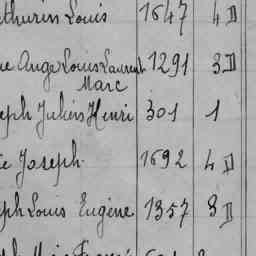 thurin Louis 1647 4 D
ue Ange Louis Laurent 1291 3 D
Marc
eph Julien Henri 301 1
ie Joseph 1692 4 D
eph Louis Eugène 1357 3 D